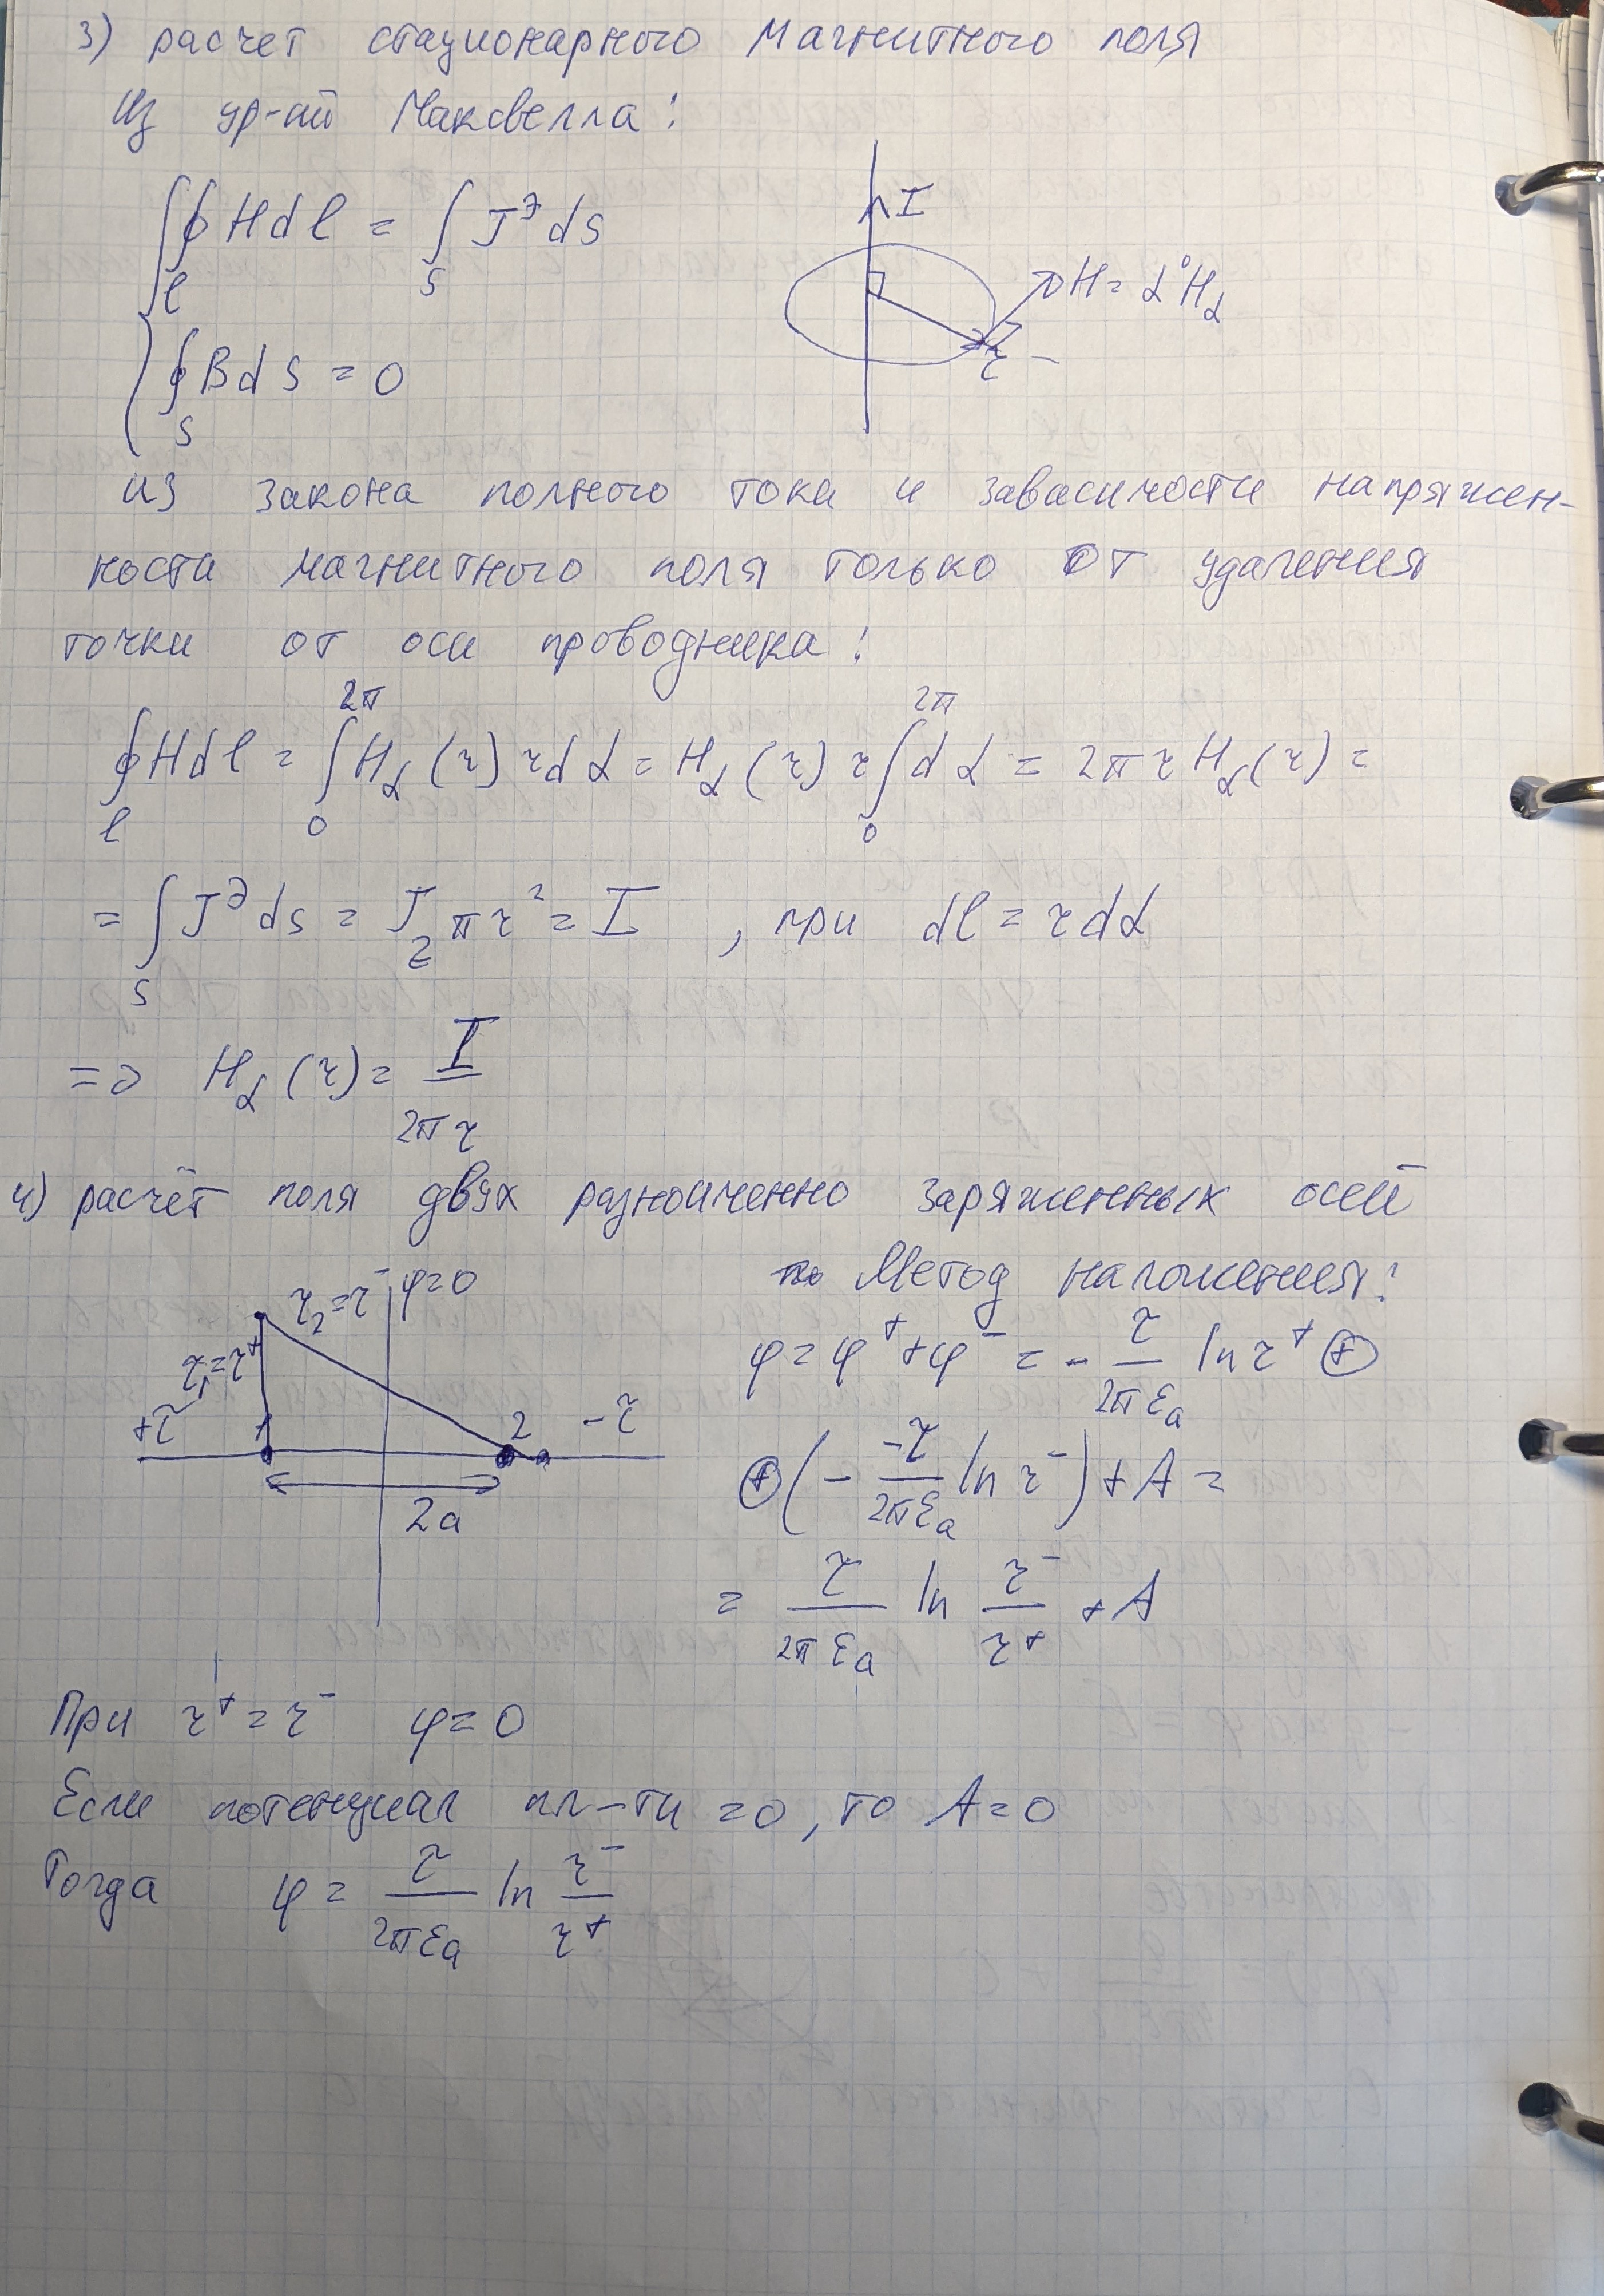 3) расчет стационарного магнитного поля
Из ур-ий Максвелла:
∮Hdl = ∫J^э ds
l S
I
H = α°H_α
r
∮BdS = 0
S
из закона полного тока и зависимости напряжен-
ности магнитного поля только от удаления
точки от оси проводника:
∮Hdl = ∫₀^2π H_α(r) r dα = H_α(r) r ∫₀^2π dα = 2πr H_α(r) =
l
= ∫J^э ds = J_z πr² = I , при dl = r dα
S
=> H_α(r) = I / 2πr
4) расчёт поля двух разноименно заряженных осей
Метод наложения:
r₂ = r⁻ φ=0
r₁ = r⁺
+τ 1 2 -τ
2a
φ = φ⁺ + φ⁻ = - τ/2πε_a ln r⁺ ⊕
⊕ (- -τ/2πε_a ln r⁻) + A =
= τ/2πε_a ln r⁻/r⁺ + A
При r⁺ = r⁻ φ = 0
Если потенциал пл-ти = 0, то A = 0
Тогда φ = τ/2πε_a ln r⁻/r⁺